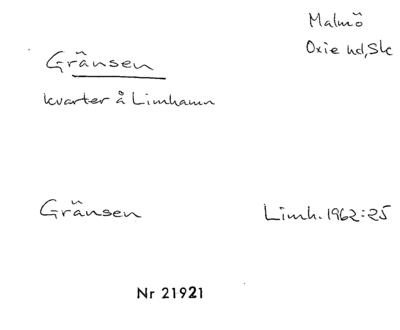 Malmö
Oxie hd, Sk
Gränsen
kvarter å Limhamn
Gränsen
Limh. 1962:25
Nr 21921